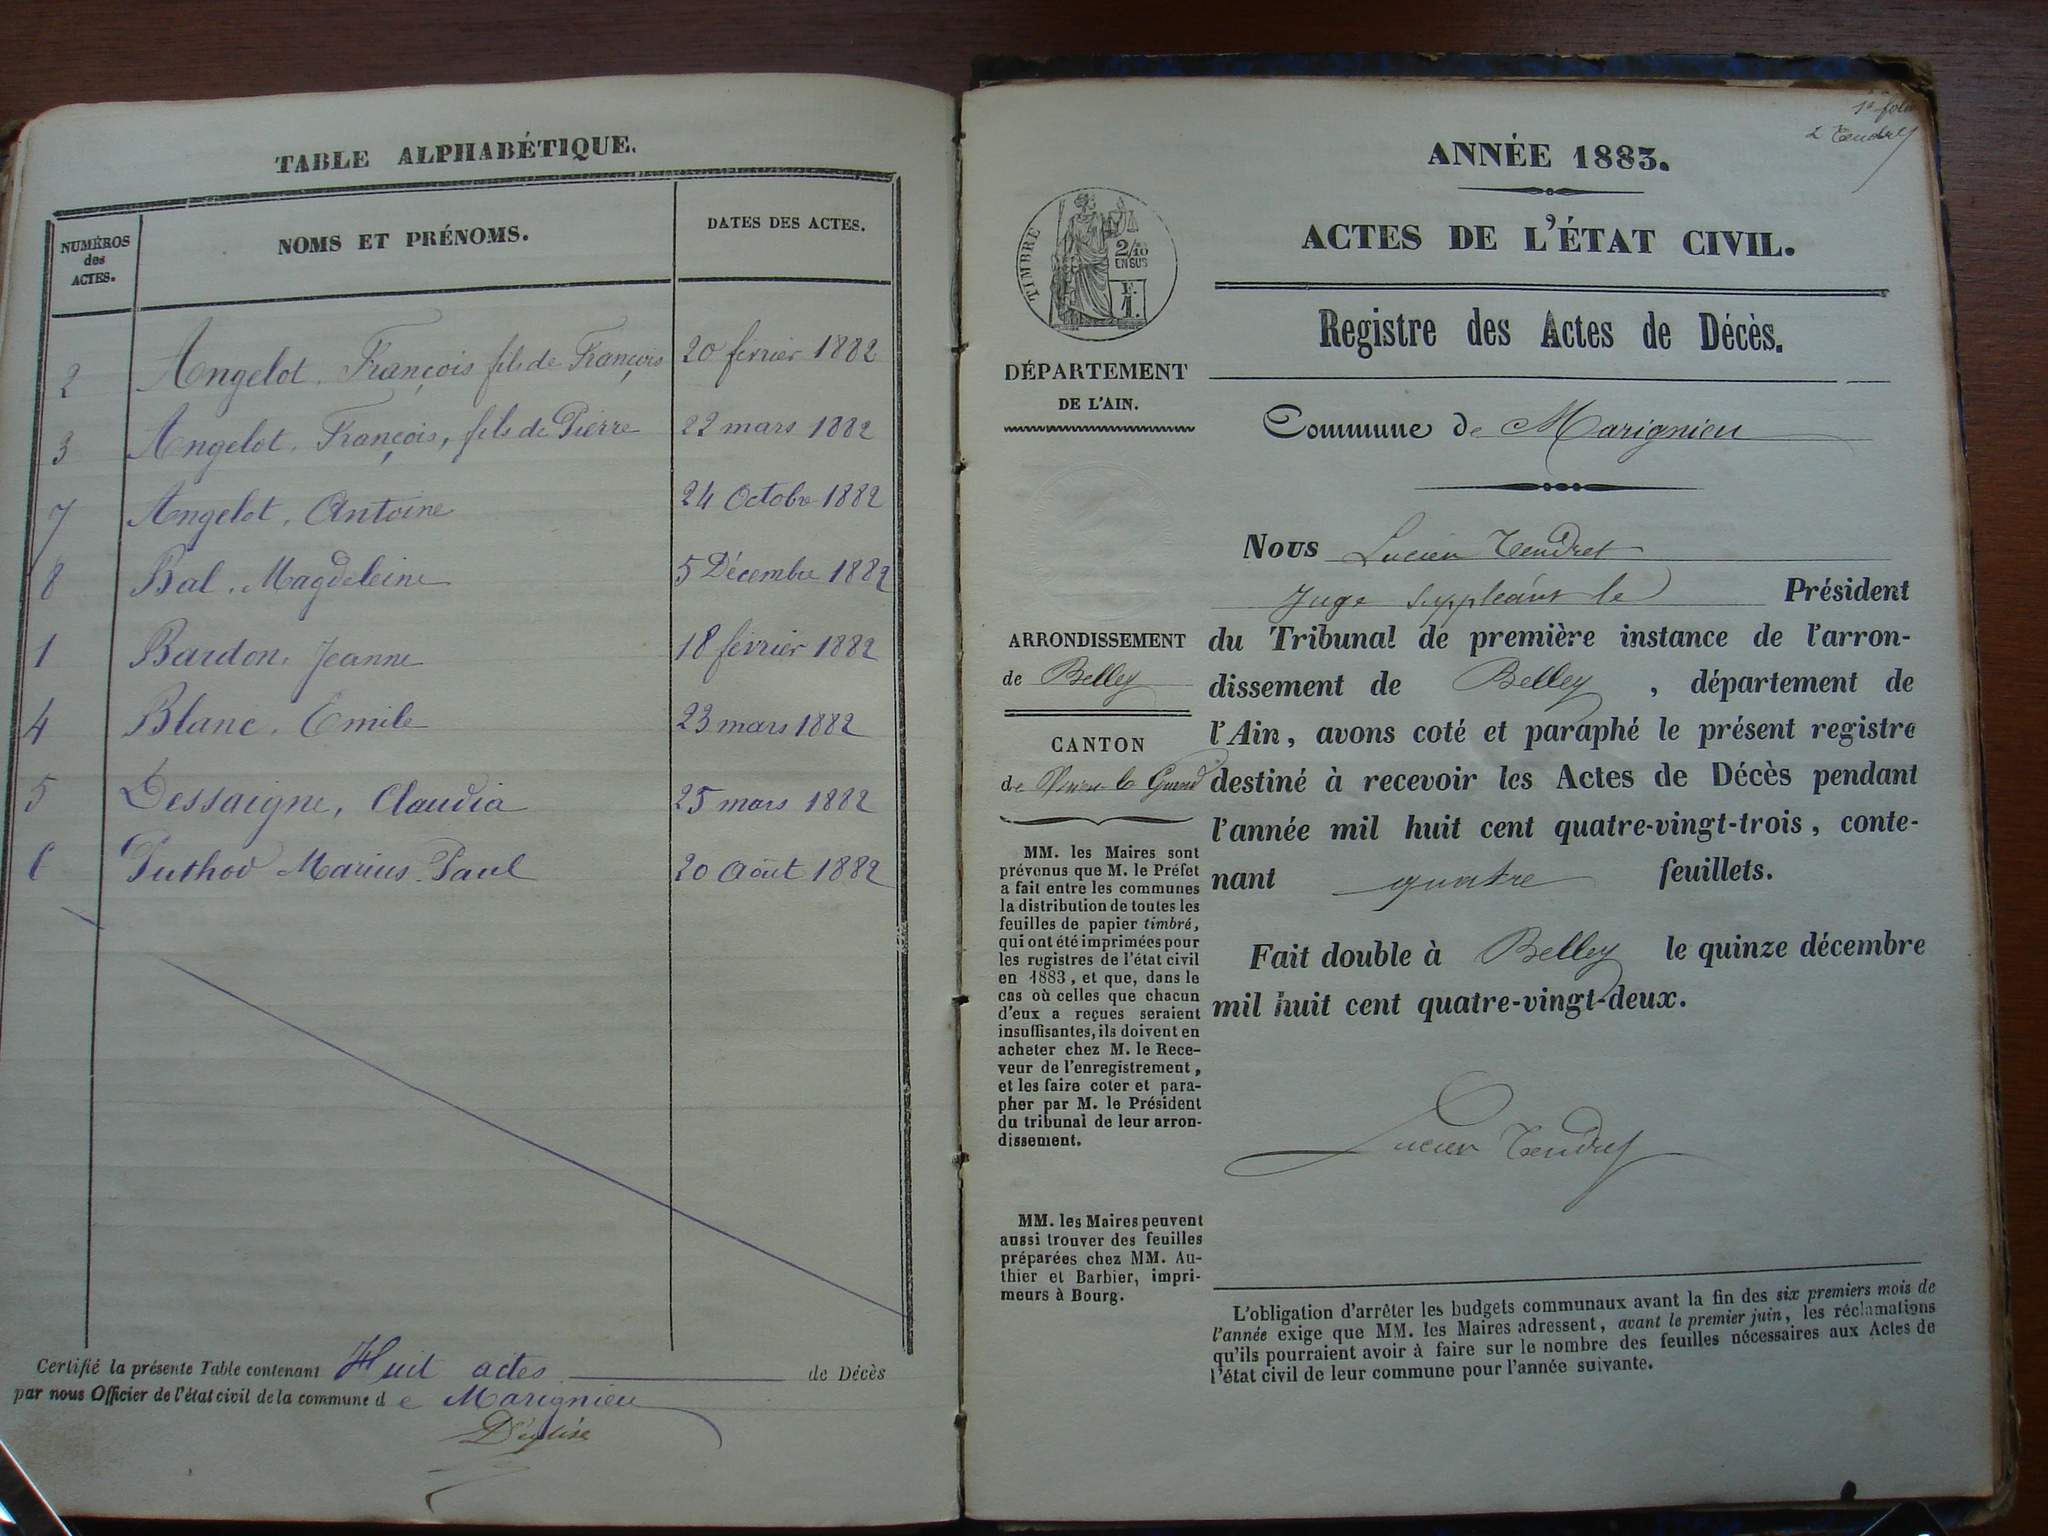 TABLE ALPHABÉTIQUE.
NUMÉROS des ACTES.
NOMS ET PRÉNOMS.
DATES DES ACTES.
2 Angelot, François fils de François 20 février 1882
3 Angelot, François, fils de Pierre 22 mars 1882
7 Angelot, Antoine 24 Octobre 1882
8 Bal, Magdeleine 5 Décembre 1882
1 Bardon, Jeanne 18 février 1882
4 Blanc, Emile 23 mars 1882
5 Dessaigne, Claudia 25 mars 1882
6 Puthod Marius Paul 20 Août 1882
Certifié la présente Table contenant Huit actes de Décès
par nous Officier de l'état civil de la commune de Marignieu
1er folio
L Tendret
ANNÉE 1883.
ACTES DE L'ÉTAT CIVIL.
TIMBRE
2/10
EN SUS
F.
1.
Registre des Actes de Décès.
DÉPARTEMENT
DE L'AIN.
Commune de Marignieu
Nous Lucien Tendret
Juge suppléant le Président
du Tribunal de première instance de l'arron-
dissement de Belley, département de
l'Ain, avons coté et paraphé le présent registre
destiné à recevoir les Actes de Décès pendant
l'année mil huit cent quatre-vingt-trois, conte-
nant quatre feuillets.
Fait double à Belley le quinze décembre
mil huit cent quatre-vingt-deux.
Lucien Tendret
ARRONDISSEMENT
de Belley
CANTON
de Virieu le Grand
MM. les Maires sont
prévenus que M. le Préfet
a fait entre les communes
la distribution de toutes les
feuilles de papier timbré,
qui ont été imprimées pour
les registres de l'état civil
en 1883, et que, dans le
cas où celles que chacun
d'eux a reçues seraient
insuffisantes, ils doivent en
acheter chez M. le Rece-
veur de l'enregistrement,
et les faire coter et para-
pher par M. le Président
du tribunal de leur arron-
dissement.
MM. les Maires peuvent
aussi trouver des feuilles
préparées chez MM. Au-
thier et Barbier, impri-
meurs à Bourg.
L'obligation d'arrêter les budgets communaux avant la fin des six premiers mois de
l'année exige que MM. les Maires adressent, avant le premier juin, les réclamations
qu'ils pourraient avoir à faire sur le nombre des feuilles nécessaires aux Actes de
l'état civil de leur commune pour l'année suivante.